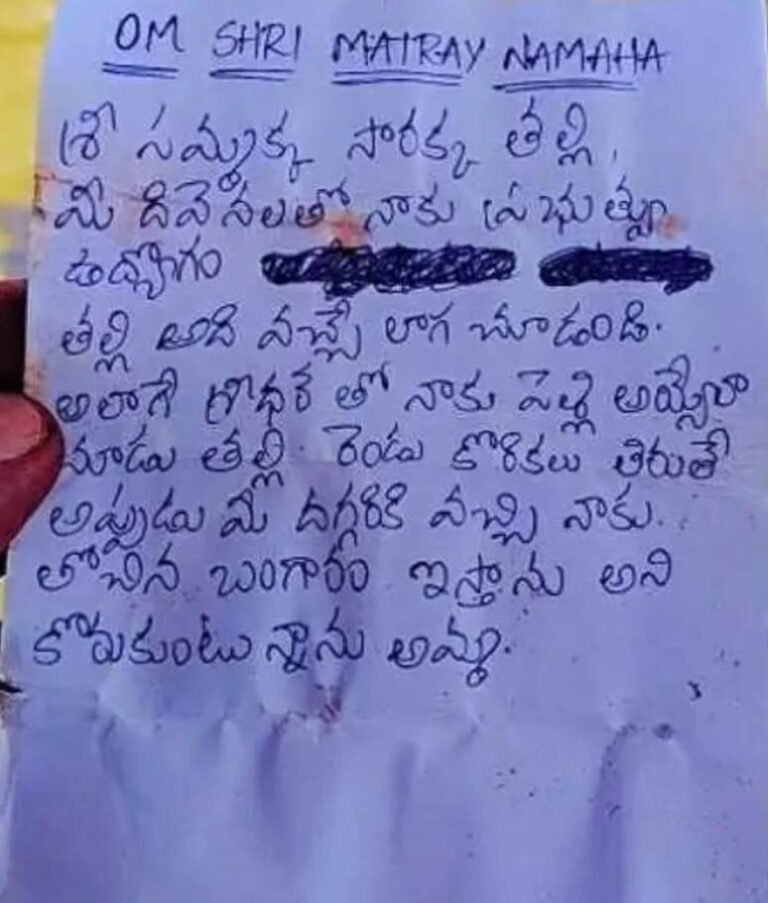 OM SHRI MATRAY NAMAHA
శ్రీ సమ్మక్క సారక్క తల్లి,
మీ దివెనలతో నాకు ప్రభుత్వ
ఉద్యోగం
తల్లి అది వచ్చే లాగ చూడండి.
అలాగే తో నాకు పెళ్లి అయ్యేలా
చూడు తల్లి. రెండు కొరికలు తిరుతే
అప్పుడు మీ దగ్గరికి వచ్చి నాకు.
తోచిన బంగారం ఇస్తాను అని
కోరుకుంటున్నాను అమ్మ.